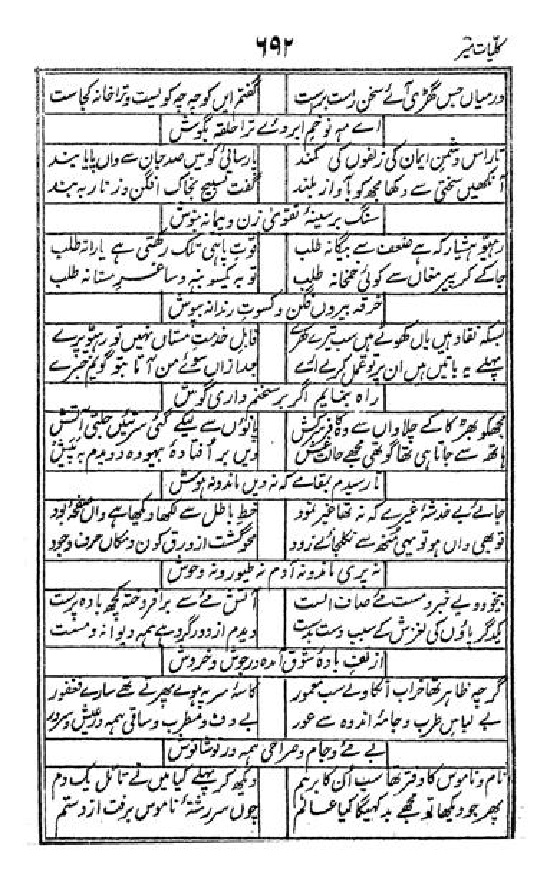 کلیات میر
۶۹۲
درمیاں جس گھڑی آئے سخن راست پرست
گفتم ایں کوچہ چہ کو ایست و ترا خانہ کجاست
اے مہ نو خم ابروئے ترا حلقہ بگوش
تا راس دشمن ایمان کی زلفوں کی کمند
پارسائی کو میں صد جان سے واں پایا بند
آنکھیں سختی سے دکھا مجھ کو آواز بلند
گفت تسبیح بخاک افگن و زنار بہ بند
سنگ بر سینۂ تقویٰ زن و پیمانہ بنوش
رہیو ہشیار کہ ہے ضعف سے بیگانہ طلب
قوت باہی تک رکھتی ہے یارانہ طلب
جاکے کر پیر مغاں سے کوئی خمخانہ طلب
توبہ یکسو بنہ و ساغر مستانہ طلب
خرقہ بیروں فگن و کسوت رندانہ بپوش
بسکہ نقاد ہیں یاں کھوئے ہیں سب تیرے کھرے
قابل خدمت مستاں نہیں تو رہیو پرے
پہلے یہ باتیں ہیں ان پر تو عمل کرلے ارے
بعد ازاں سوئے من آ تا بتو گویم خبرے
راہ بنمایم اگر بر سخنم داری گوش
مجھکو بھڑکا کے چلا واں سے وہ کافر سرکش
پانوں سے لیکے گئی سر تئیں جلتی آتش
ہاتھ سے جاتا ہی تھا گو تھی مجھے حالت غش
دیں بر افتادہ بہیوہ دویدم بہ پیش
تا رسیدم بمقامے کہ نہ دیں ماند و نہ ہوش
جائے بے خدشۂ غیرے کہ نہ تھا خیر نمود
خط باطل سے لکھا دیکھا ہے واں صفحۂ بود
تو بھی واں ہو تو یہی منھ سے نکلجائے زود
محو گشت از ورق کون و مکاں حرف وجود
نہ پری ماند و نہ آدم نہ طیور و نہ وحوش
بیخود و بے خبر و مست مئے صاف الست
آتش مے سے برافروختہ کچھ بادہ پرست
یکدگر پاؤں کی لغزش کے سبب دست بدست
دیدم از دور گروہے ہمہ دیوانہ و مست
از تف بادۂ شوق آمدہ در جوش و خروش
گرچہ ظاہر تھا خراب انکا ولے سب معمور
کاسۂ سر پہ لیے پھرتے تھے سارے فغفور
بے لباس طرب و جامۂ اندوہ سے عور
بے دف و مطرب و ساقی ہمہ در عیش و سرور
بے مے و جام و صراحی ہمہ در نوشانوش
نام و ناموس کا دفتر تھا سب ان کا برہم
دیکھ کر پہلے کیا میں نے تأمل یک دم
پھر جو دیکھا تو مجھے بد کہیگا کیا عالم
چوں سررشتۂ ناموس برفت از دستم